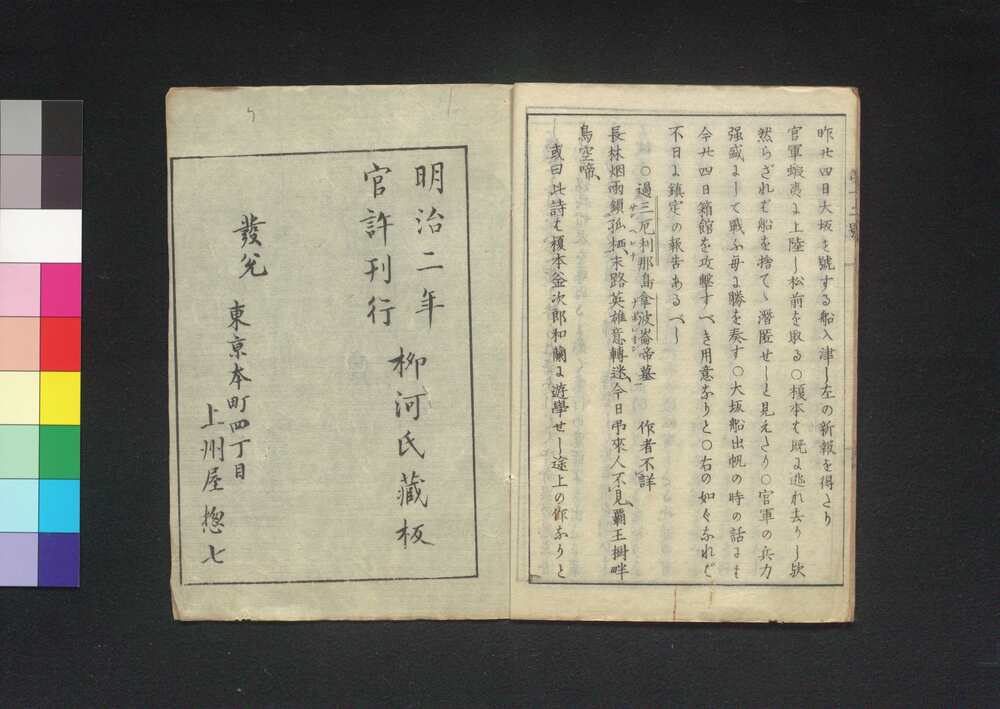 昨廿四日大坂と號する船入津し左の新報を得たり
官軍蝦夷に上陸し松前を取る○榎本も既に逃れ去りし歟
然らざれば船を捨てゝ潛匿せしと見えたり○官軍の兵力
强盛にして戰ふ毎に勝を奏す○大坂船出帆の時の話にも
今廿四日箱館を攻擊すべき用意なりと○右の如くなれば
不日に鎭定の報吿あるべし
○過三厄利那島拿波崙帝墓 作者不詳
長林烟雨鎖孤栖、末路英雄意轉迷、今日弔來人不見、覇王樹畔
鳥空啼、
或曰此詩は榎本釜次郎和蘭に遊學せし途上の作なりと
明治二年 柳河氏藏板
官許刊行
發兌 東京本町四丁目
上州屋惣七